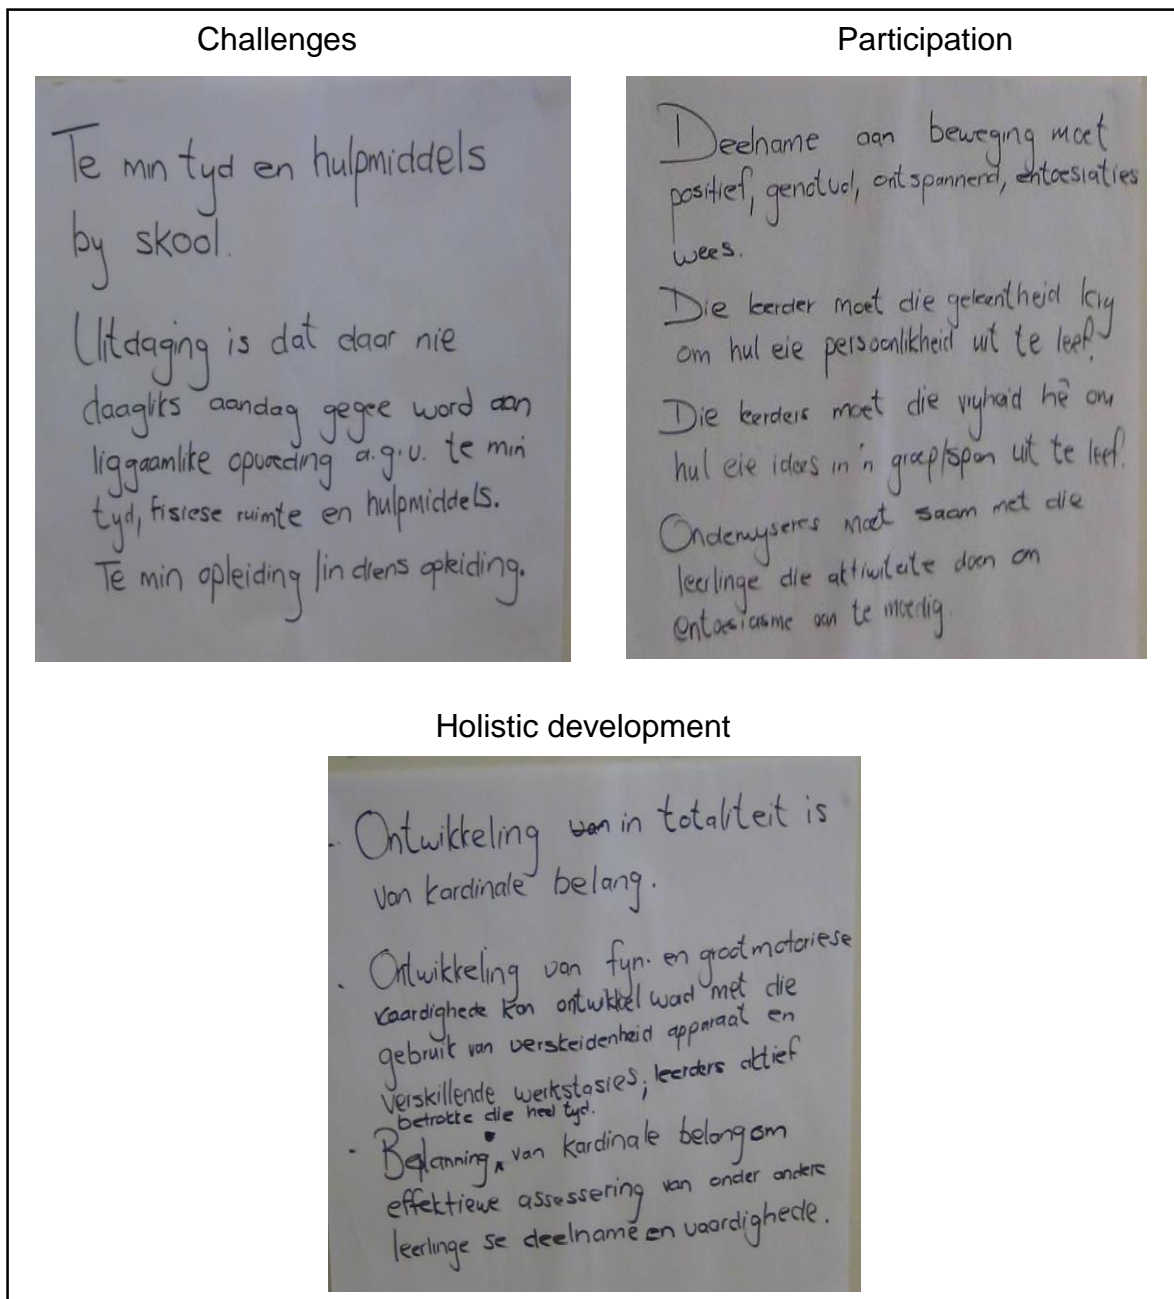 Challenges
Participation
Te min tyd en hulpmiddels
by skool.
Uitdaging is dat daar nie
daagliks aandag gegee word aan
liggaamlike opvoeding a.g.v. te min
tyd, fisiese ruimte en hulpmiddels.
Te min opleiding/indiens opleiding.
Deelname aan beweging moet
positief, genotvol, ontspannend, entoesiaties
wees.
Die leerder moet die geleentheid kry
om hul eie persoonlikheid uit te leef.
Die leerders moet die vryheid hê om
hul eie idees in 'n groep/span uit te leef.
Onderwyseres moet saam met die
leerlinge die aktiwiteite doen om
entoesiasme aan te moedig.
Holistic development
- Ontwikkeling van in totaliteit is
van kardinale belang.
. Ontwikkeling van fyn- en grootmotoriese
vaardighede kan ontwikkel word met die
gebruik van verskeidenheid apparaat en
verskillende werkstasies, leerders aktief
betrokke die heel tyd.
- Beplanning van kardinale belang om
effektiewe assessering van onder andere
leerlinge se deelname en vaardighede.